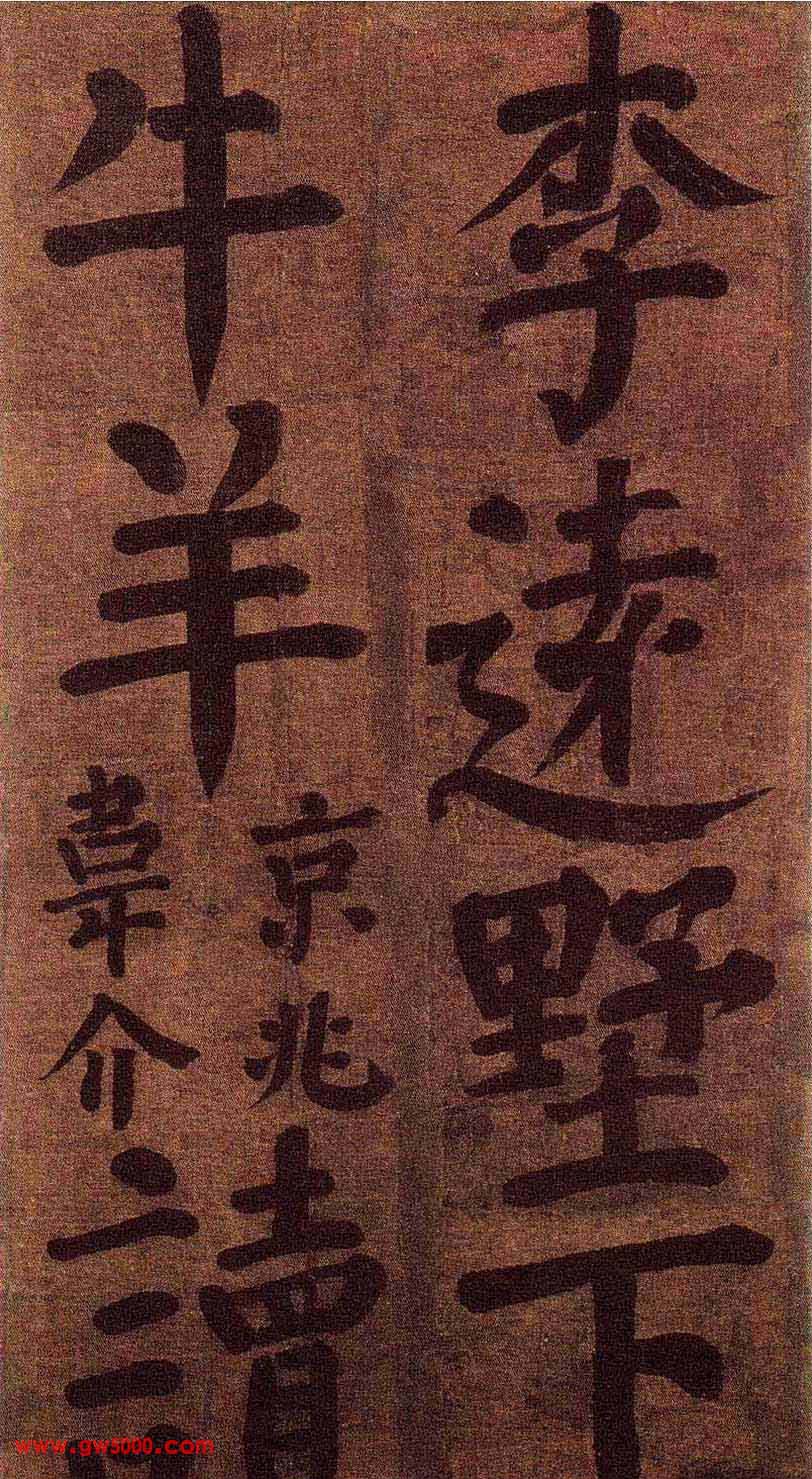 李遠墅下
牛羊
京兆
韋介
讀
www.gw5000.com